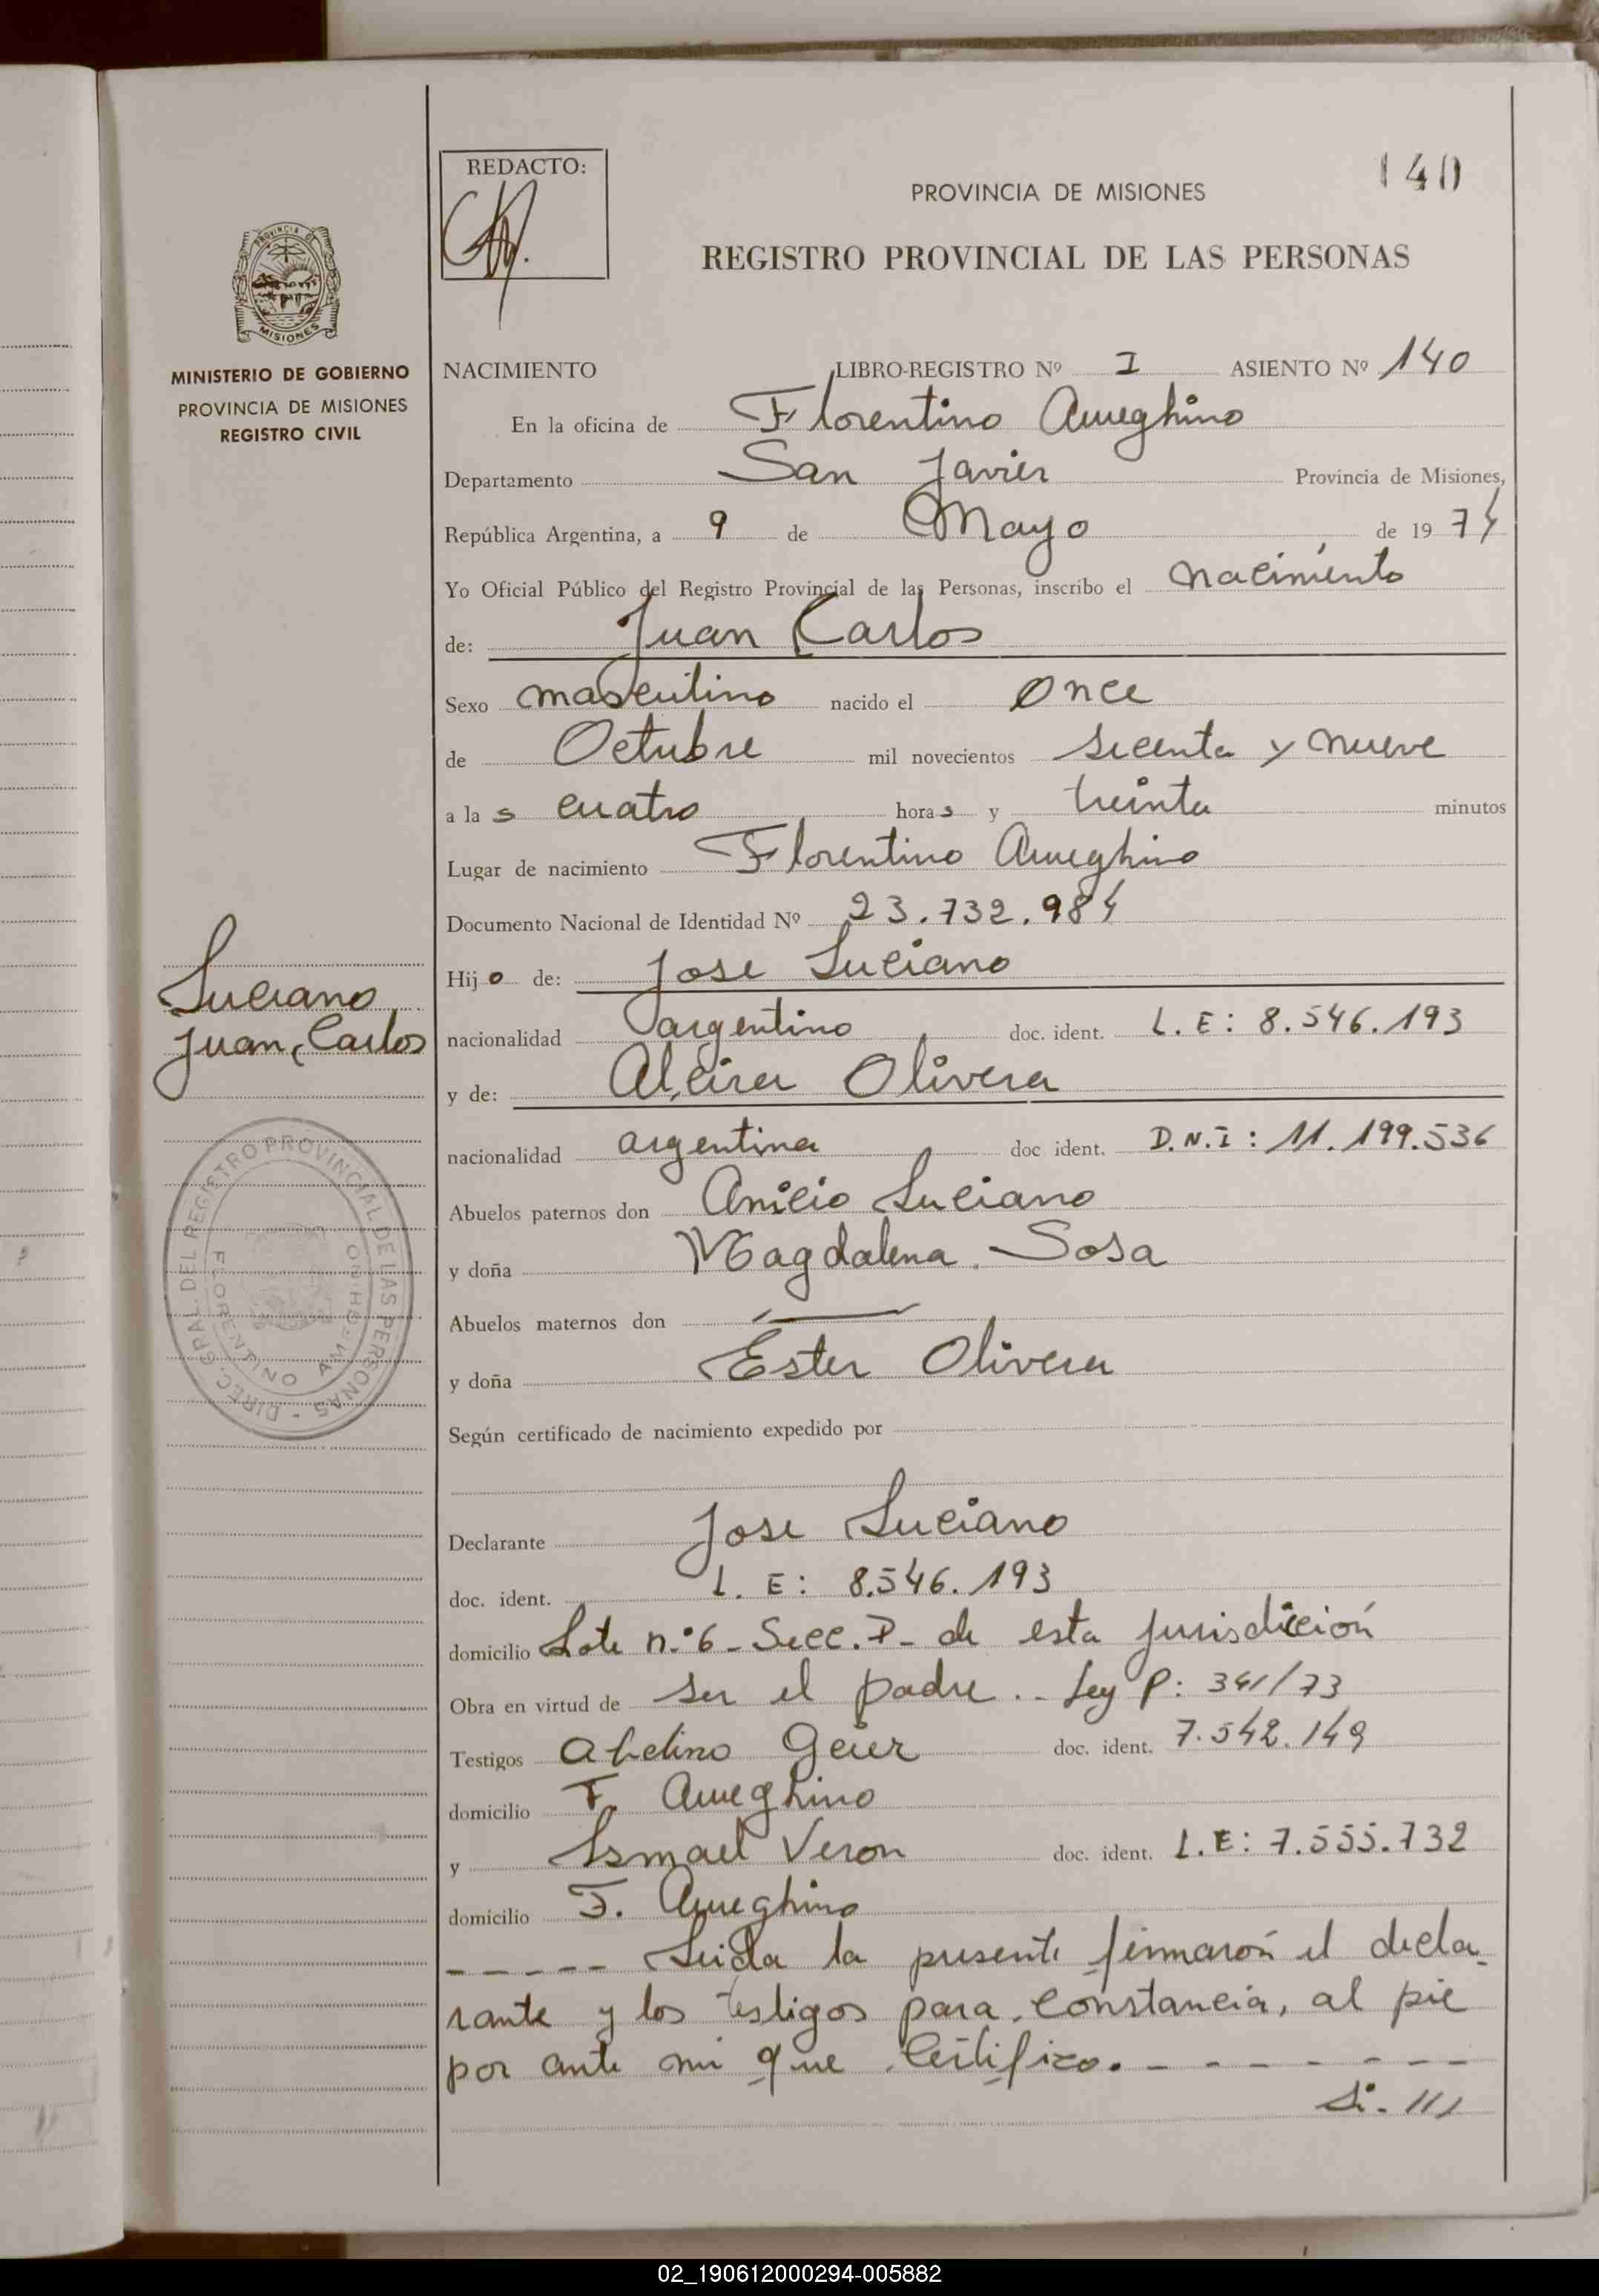 REDACTO:
140
PROVINCIA DE MISIONES
REGISTRO PROVINCIAL DE LAS PERSONAS
PROVINCIA DE
MISIONES
MINISTERIO DE GOBIERNO
PROVINCIA DE MISIONES
REGISTRO CIVIL
NACIMIENTO LIBRO-REGISTRO Nº I ASIENTO Nº 140
En la oficina de Florentino Ameghino
Departamento San Javier Provincia de Misiones,
República Argentina, a 9 de Mayo de 1974
Yo Oficial Público del Registro Provincial de las Personas, inscribo el nacimiento
de: Juan Carlos
Sexo masculino nacido el once
de Octubre mil novecientos secenta y nueve
a las cuatro horas y treinta minutos
Lugar de nacimiento Florentino Ameghino
Documento Nacional de Identidad Nº 23.732.984
Hijo de: Jose Luciano
nacionalidad argentino doc. ident. L.E: 8.546.193
y de: Alcira Olivera
nacionalidad argentina doc ident. D.N.I: 11.199.536
Abuelos paternos don Anicio Luciano
y doña Magdalena Sosa
Abuelos maternos don —
y doña Ester Olivera
Según certificado de nacimiento expedido por
Declarante Jose Luciano
doc. ident. L.E: 8.546.193
domicilio Lote n.º 6 - Secc. D - de esta jurisdicción
Obra en virtud de ser el padre.- Ley P: 341/73
Testigos Abelino Geier doc. ident. 7.542.149
domicilio F. Ameghino
y Ismael Veron doc. ident. L.E: 7.555.732
domicilio F. Ameghino
----- Leida la presente firmarón el decla-
rante y los testigos para constancia, al pie
por ante mi que Certifico.- - - - - - -
Si- ///
Luciano
Juan Carlos
DIREC. GRAL. DEL REGISTRO PROVINCIAL DE LAS PERSONAS -
FLORENTINO AMEGHINO
02_190612000294-005882